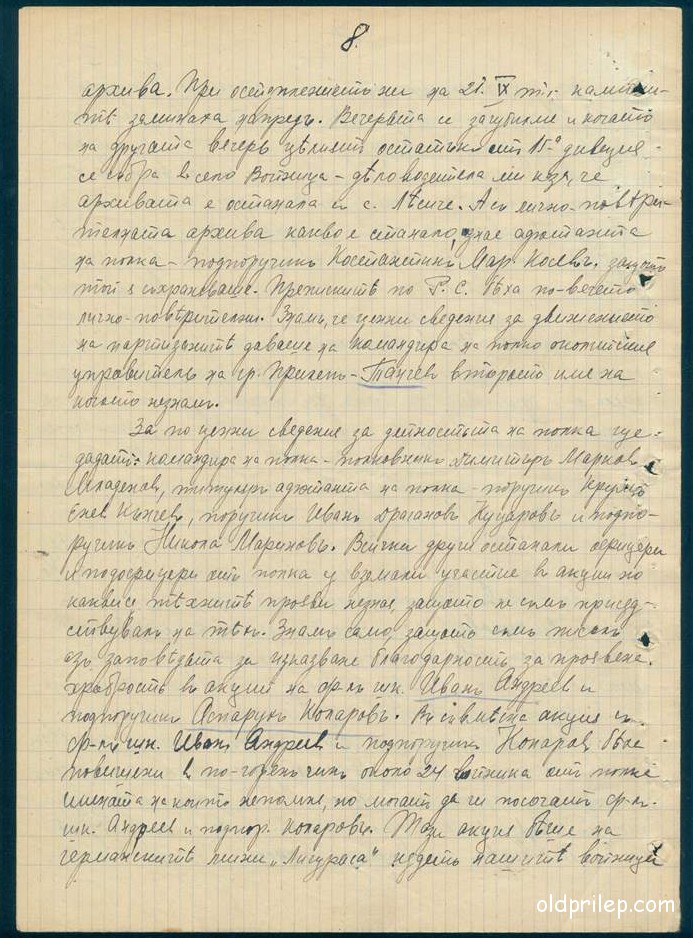 8.
архива. При остеплението ни на 21. IX т.г. камиони-
тѣ заминаха напредъ. Вечерьта се загубихме и когато
на другата вечерь цѣлиятъ остатъкъ отъ 15а дивизия
се събра въ село Войница - дѣловодителя ми каза, че
архивата е останала въ с. Лѣсиче. А съ лично-повѣри-
телната архива какво е станало, знае аджютанта
на полка - подпоручикъ Костантинъ Мар. Носевъ. защото
той я съхраняваше. Преписките по Р.С. бѣха по-вечето
лично-повѣрителни. Знамъ, че ценни сведения за движението
на партизанитѣ даваше на командира на полка околийския
управителъ на гр. Прилепъ - Танчев второто име на
когото незнамъ.
За по ценни сведения за дейностьта на полка ще
дадатъ: командира на полка - полковникъ Димитъръ Марков
Младенов, титуляръ аджютанта на полка - поручикъ
Енев Кънчев, поручикъ Иванъ Драганов Куцаровъ и подпо-
ручикъ Никола Мариновъ. Всички други останали офицери
и подофицери отъ полка са взимали участие въ акции но
какви са тѣхнитѣ прояви незная, защото не съмъ присъд-
ствувалъ на тѣхъ. Знамъ само, защото съмъ писалъ
азъ заповѣдта за изказване благодарность за проявена
храбрость въ акция на ф-лъ шк. Иванъ Андреев и
подпоручикъ Аспарухъ Копаровъ. Въ същата акция съ
ф-лъ шк. Иванъ Андреев и подпоручикъ Копаров бѣха
повишени въ по-горенъ чинъ около 24 войника отъ полка
имената на които непомня, но могатъ да ги посочатъ ф-лъ
шк. Андреев и подпор. Копаровъ. Тази акция бѣше на
германскитѣ мини „Лигураса" кѫдето нашитѣ войници
oldprilep.com